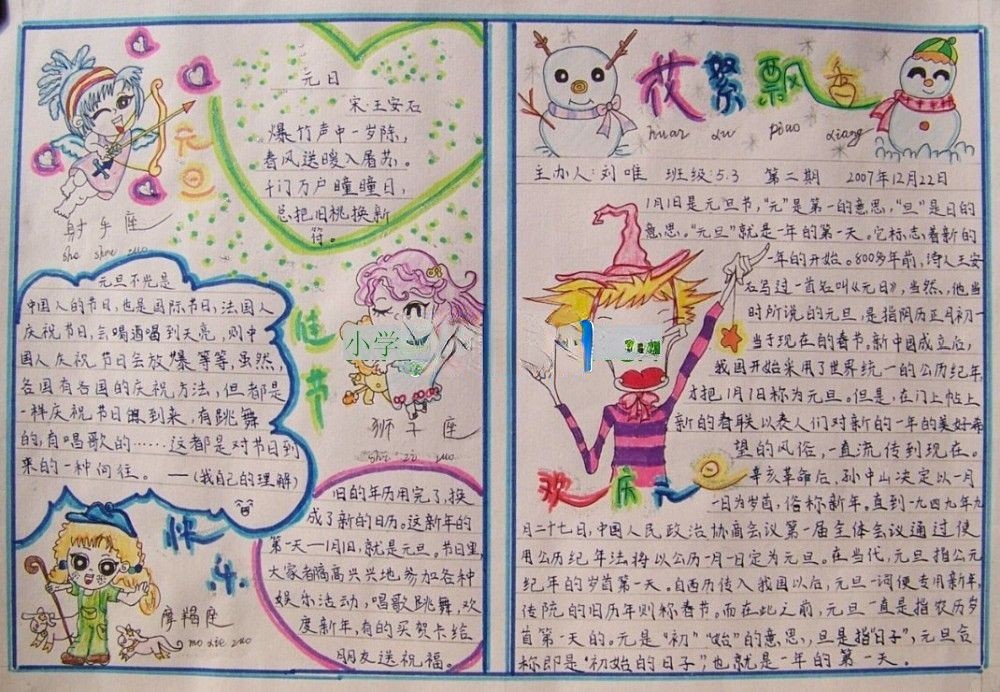 元日
宋 王安石
爆竹声中一岁除,
春风送暖入屠苏。
千门万户瞳瞳日,
总把旧桃换新
符。
元旦
射手座
she shou zuo
元旦不光是
中国人的节日,也是国际节日,法国人
庆祝节日,会喝酒喝到天亮,则中
国人庆祝节日会放爆等等,虽然
各国有各国的庆祝方法,但都是
一样庆祝节日的到来,有跳舞
的,有唱歌的……这都是对节日到
来的一种向往。 ——(我自己的理解)
佳节
小学
狮子座
shi zi zuo
快
摩羯座
mo xie zuo
旧的年历用完了,换
成了新的日历。这新年的
第一天一1月1日,就是元旦。节日里,
大家都高高兴兴地参加各种
娱乐活动,唱歌跳舞,欢
度新年,有的买贺卡给
朋友送祝福。
花絮飘香
huar xu piao xiang
主办人:刘唯 班级:5.3 第二期 2007年12月22日
1月1日是元旦节,“元”是第一的意思,“旦”是日的
意思。“元旦”就是一年的第一天。它标志着新的
一年的开始。800多年前,诗人王安
石写过一首名叫《元日》,当然,他当
时所说的元旦,是指阴历正月初一
当于现在的春节。新中国成立后,
我国开始采用了世界统一的公历纪年,
才把1月1日称为元旦。但是,在门上帖上
新的春联以表人们对新的一年的美好希
望的风俗,一直流传到现在。
辛亥革命后,孙中山决定以一月
一日为岁首,俗称新年。直到一九四九年九
月二十七日,中国人民政治协商会议第一届全体会议通过使
用公历纪年法将以公历一月一日定为元旦。在当代,元旦指公元
纪年的岁首第一天。自西历传入我国以后,元旦一词便专用新年,
传统的旧历年则称春节。而在此之前,元旦一直是指农历岁
首第一天的。元是“初”“始”的意思,旦是指“日子”,元旦合
称即是“初始的日子”,也就是一年的第一天。
欢庆元旦